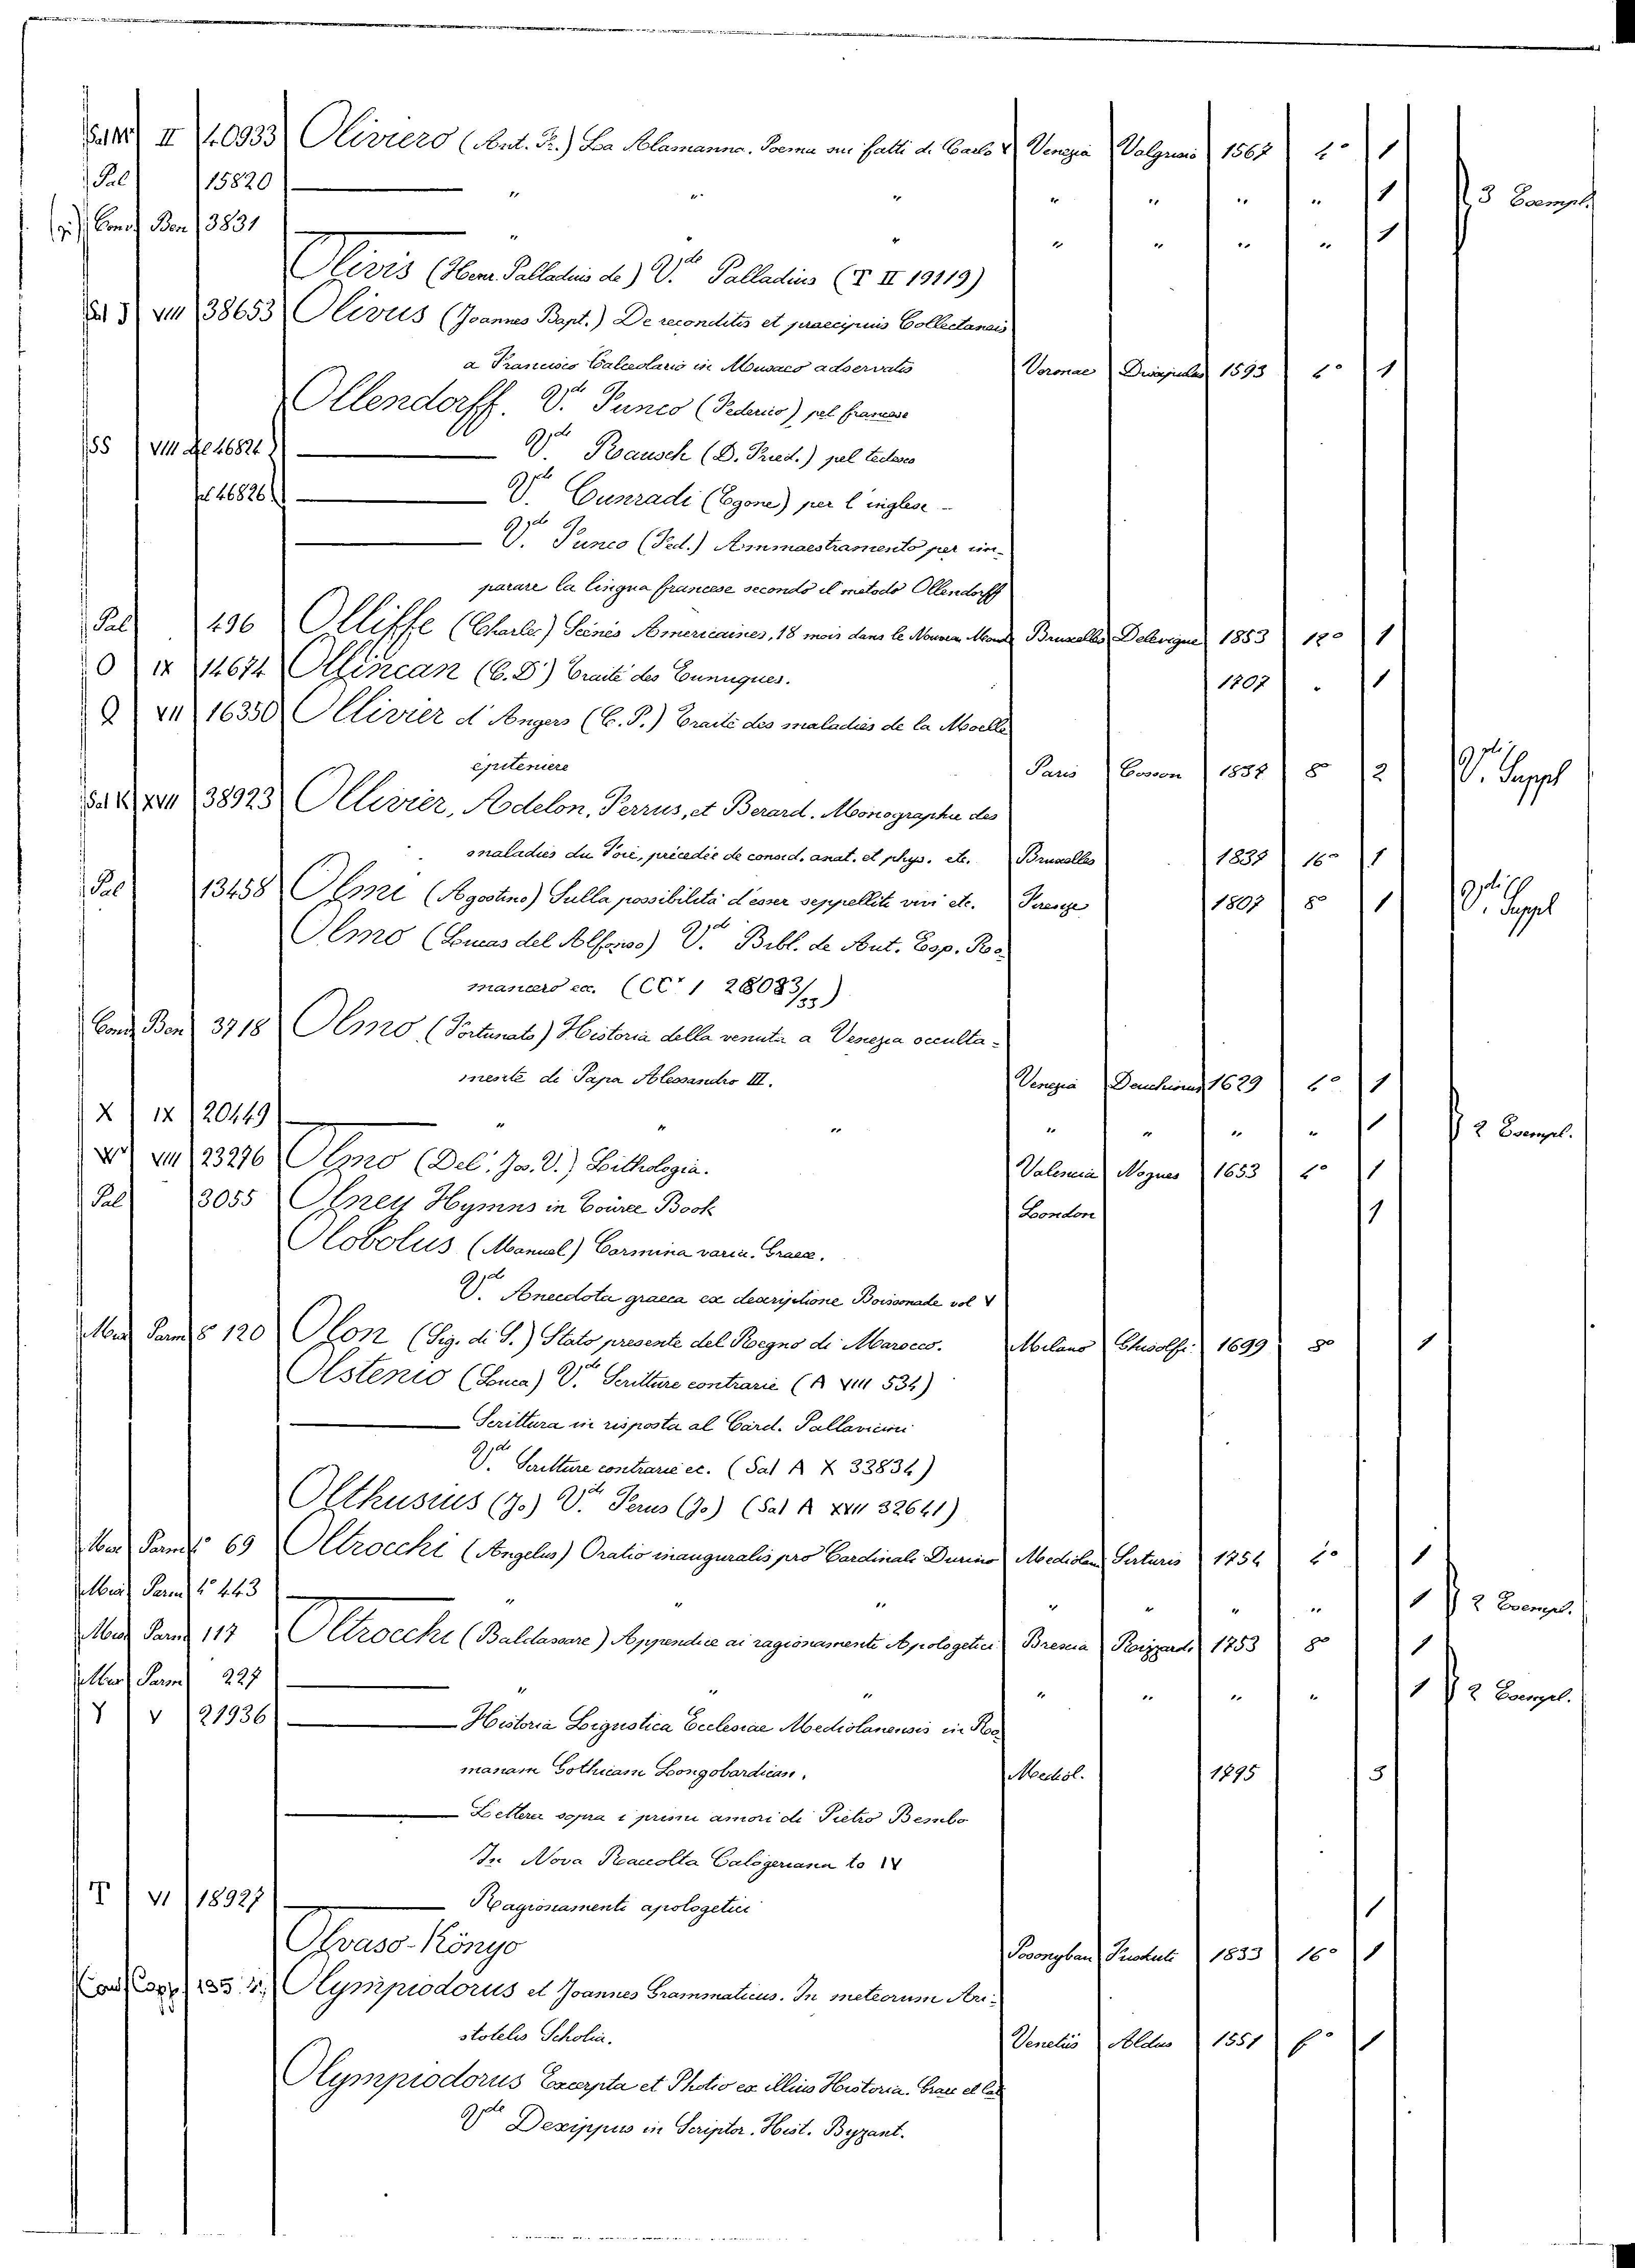 Sal M II 40933 Oliviero (Ant. Fr.) La Alamanna. Poema sui fatti di Carlo V Venezia Valgrisio 1567 4° 1
Pal 15820 " " " " " " " 1 3 Exempl.
Cons Ben 3831 " " " " " " " 1
Olivis (Henr. Palladius de) Vde Palladius (T II 19119)
Sal J VIII 38653 Olivus (Joannes Bapt.) De reconditis et praecipuis Collectaneis
a Francisco Calceolario in Musaeo adservatis Veronae Discipulus 1593 4° 1
Ollendorff. Vde Funco (Federico) pel francese
SS VIII del 46824 Vde Rausch (D. Fried.) pel tedesco
del 46826 Vde Cunradi (Egone) per l'inglese -
Vde Funco (Fed.) Ammaestramento per im-
parare la lingua francese secondo il metodo Ollendorff
Pal 496 Olliffe (Charles) Scènes Américaines, 18 mois dans le Nouveau Monde Bruxelles Delevigne 1853 12° 1
O IX 14674 Ollincan (C. D.) Traité des Eunuques. 1707 . 1
Q VII 16350 Ollivier d'Angers (C. P.) Traité des maladies de la Moelle
epiteniere Paris Cosson 1837 8 2 V. Suppl
Sal K XVII 38923 Ollivier, Adelon, Ferrus, et Berard. Monographie des
maladies du Foie, précedée de consid. anat. et phys. etc. Bruxelles 1837 16° 1
Pal 13458 Olmi (Agostino) Sulla possibilità d'esser seppelliti vivi etc. Firenze 1807 8° 1 V. Suppl
Olmo (Lucas del Alfonso) Vde Bibl. de Aut. Esp. Ro-
mancero ec. (CC* 1 28083/35)
Cons Ben 3718 Olmo (Fortunato) Historia della venuta a Venezia occulta-
mente di Papa Alessandro III. Venezia Deuchinus 1629 4° 1
X IX 20449 " " " " " " " 1 2 Exempl.
VIII 23276 Olmo (Del. Jos. V.) Lithologia. Valencia Nogues 1653 4° 1
Pal 3055 Olney Hymns in Cource Book London 1
Olobolus (Manuel) Carmina varia. Graece.
Vde Anecdota graeca ex descriptione Boissonade vol V
Mus Parm 8 120 Olon (Sig. di S.) Stato presente del Regno di Marocco. Milano Ghisolfi. 1699 8° 1
Olstenio (Luca) Vde Scritture contrarie (A VIII 534)
Scrittura in risposta al Card. Pallavicini
Vde Scritture contrarie ec. (Sal A X 33834)
Olthusius (Jo) Vde Ferus (Jo) (Sal A XVII 32641)
Mus Parm 4° 69 Oltrocchi (Angelus) Oratio inauguralis pro Cardinali Durino Mediolan Serturis 1754 4° 1
Mus Parm 4° 443 " " " " " " " 1 2 Exempl.
Mus Parm 117 Oltrocchi (Baldassare) Appendice ai ragionamenti Apologetici Brescia Rizzardi 1753 8° 1
Mus Parm 227 " " " " " " " 1 2 Exempl.
Y V 21936 Historia Ligustica Ecclesiae Mediolanensis in Ro-
manam Gothicam Longobardican. Mediol. 1795 3
Lettera sopra i primi amori di Pietro Bembo
In Nova Raccolta Calogeriana to IV
T VI 18927 Ragionamenti apologetici 1
Olvaso-Könyo Posonyban 1833 16° 1
Cons Capp 135. Olympiodorus et Joannes Grammaticus. In meteorum Ari-
stotelis Scholia. Venetiis Aldus 1551 f° 1
Olympiodorus Excerpta et Photio ex illius Historia. Graec et Lat
Vde Dexippus in Scriptor. Hist. Byzant.